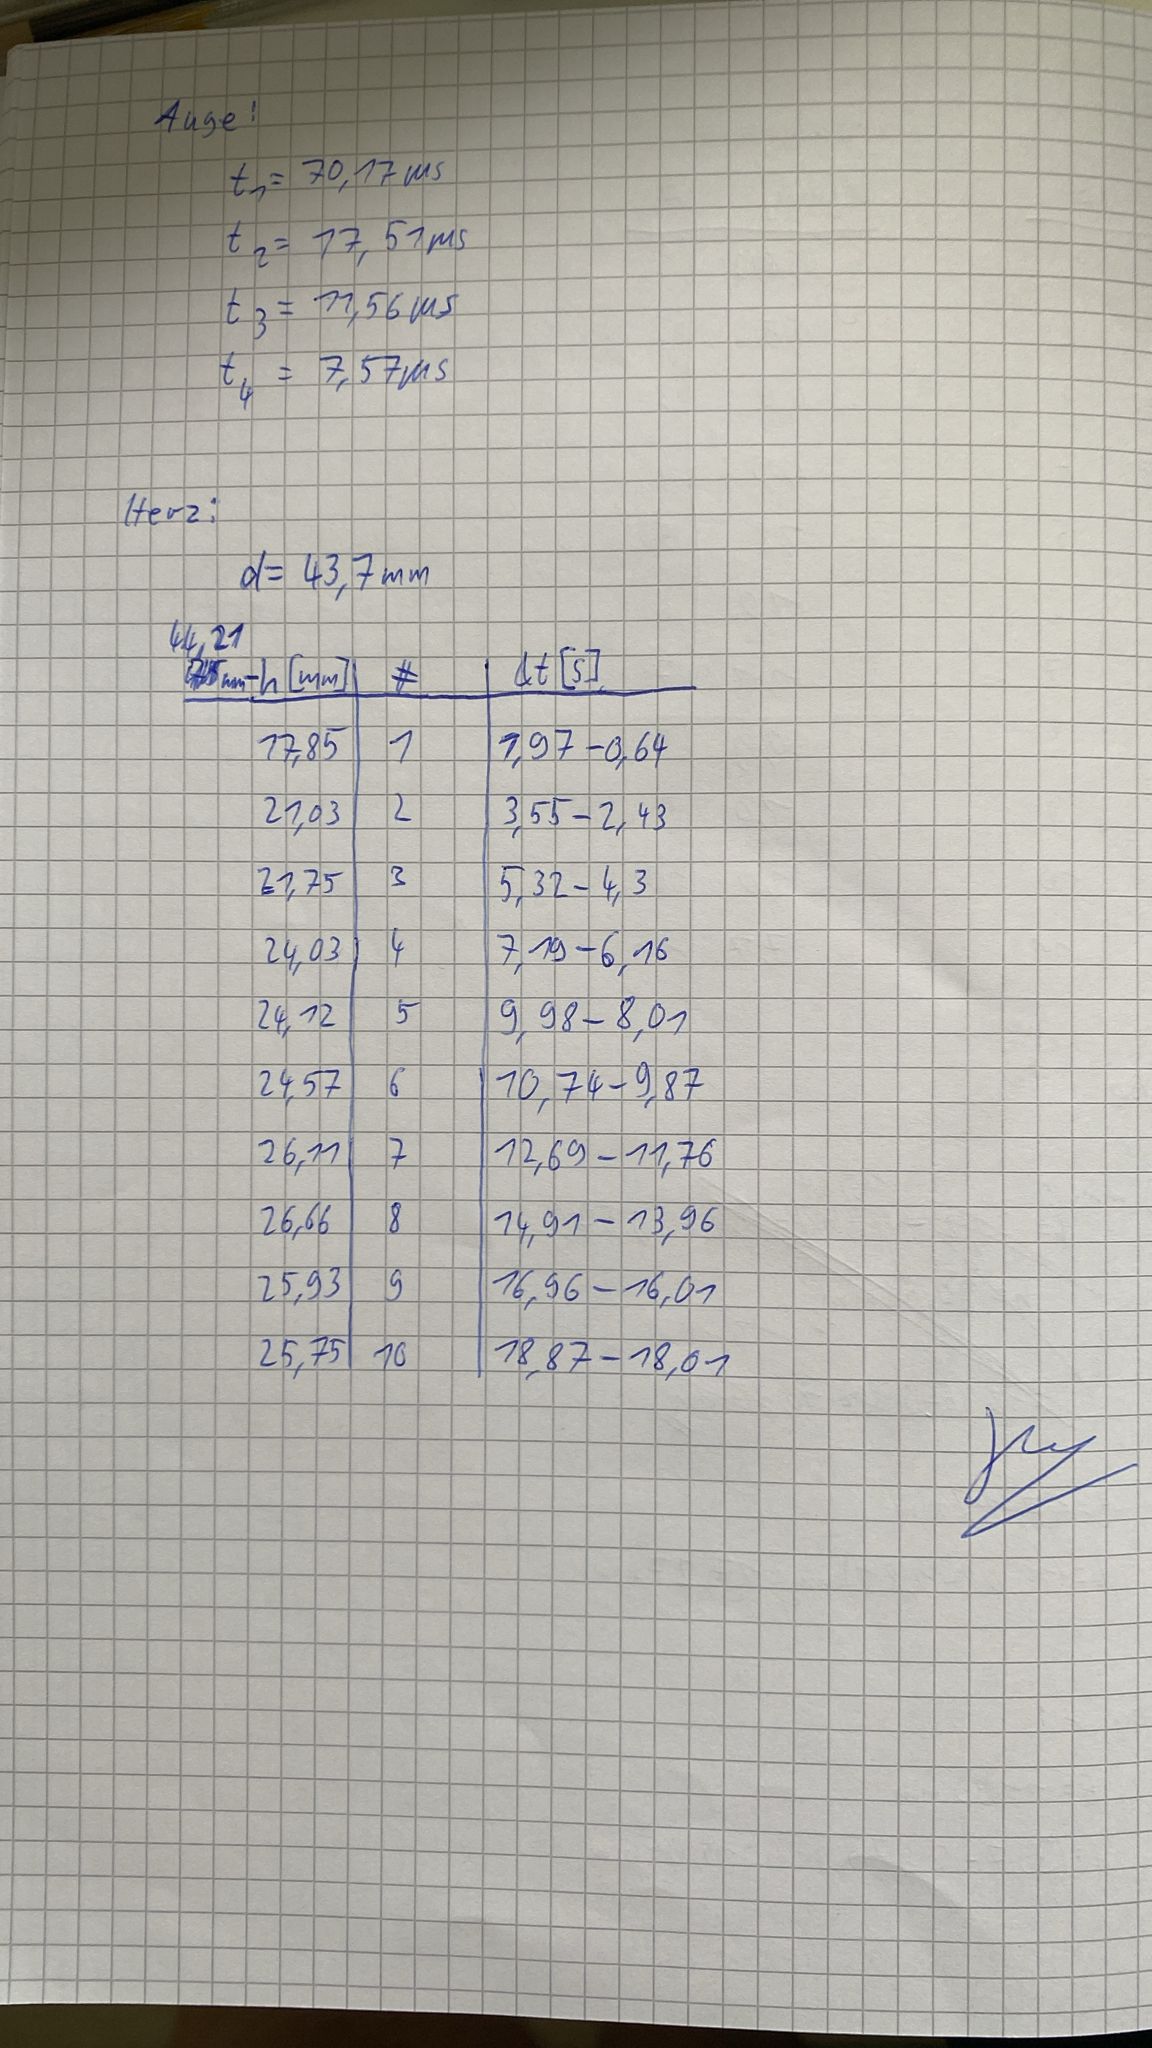 Auge:
t1 = 70,17 ms
t2 = 17,51 ms
t3 = 11,56 ms
t4 = 7,57 ms
Herz:
d = 43,7 mm
44,21
mm-h [mm] # dt [s]
17,85 1 1,97 - 0,64
21,03 2 3,55 - 2,43
21,75 3 5,32 - 4,3
24,03 4 7,19 - 6,16
24,12 5 9,98 - 8,01
24,57 6 10,74 - 9,87
26,11 7 12,69 - 11,76
26,66 8 14,91 - 13,96
25,93 9 16,96 - 16,01
25,75 10 18,87 - 18,01